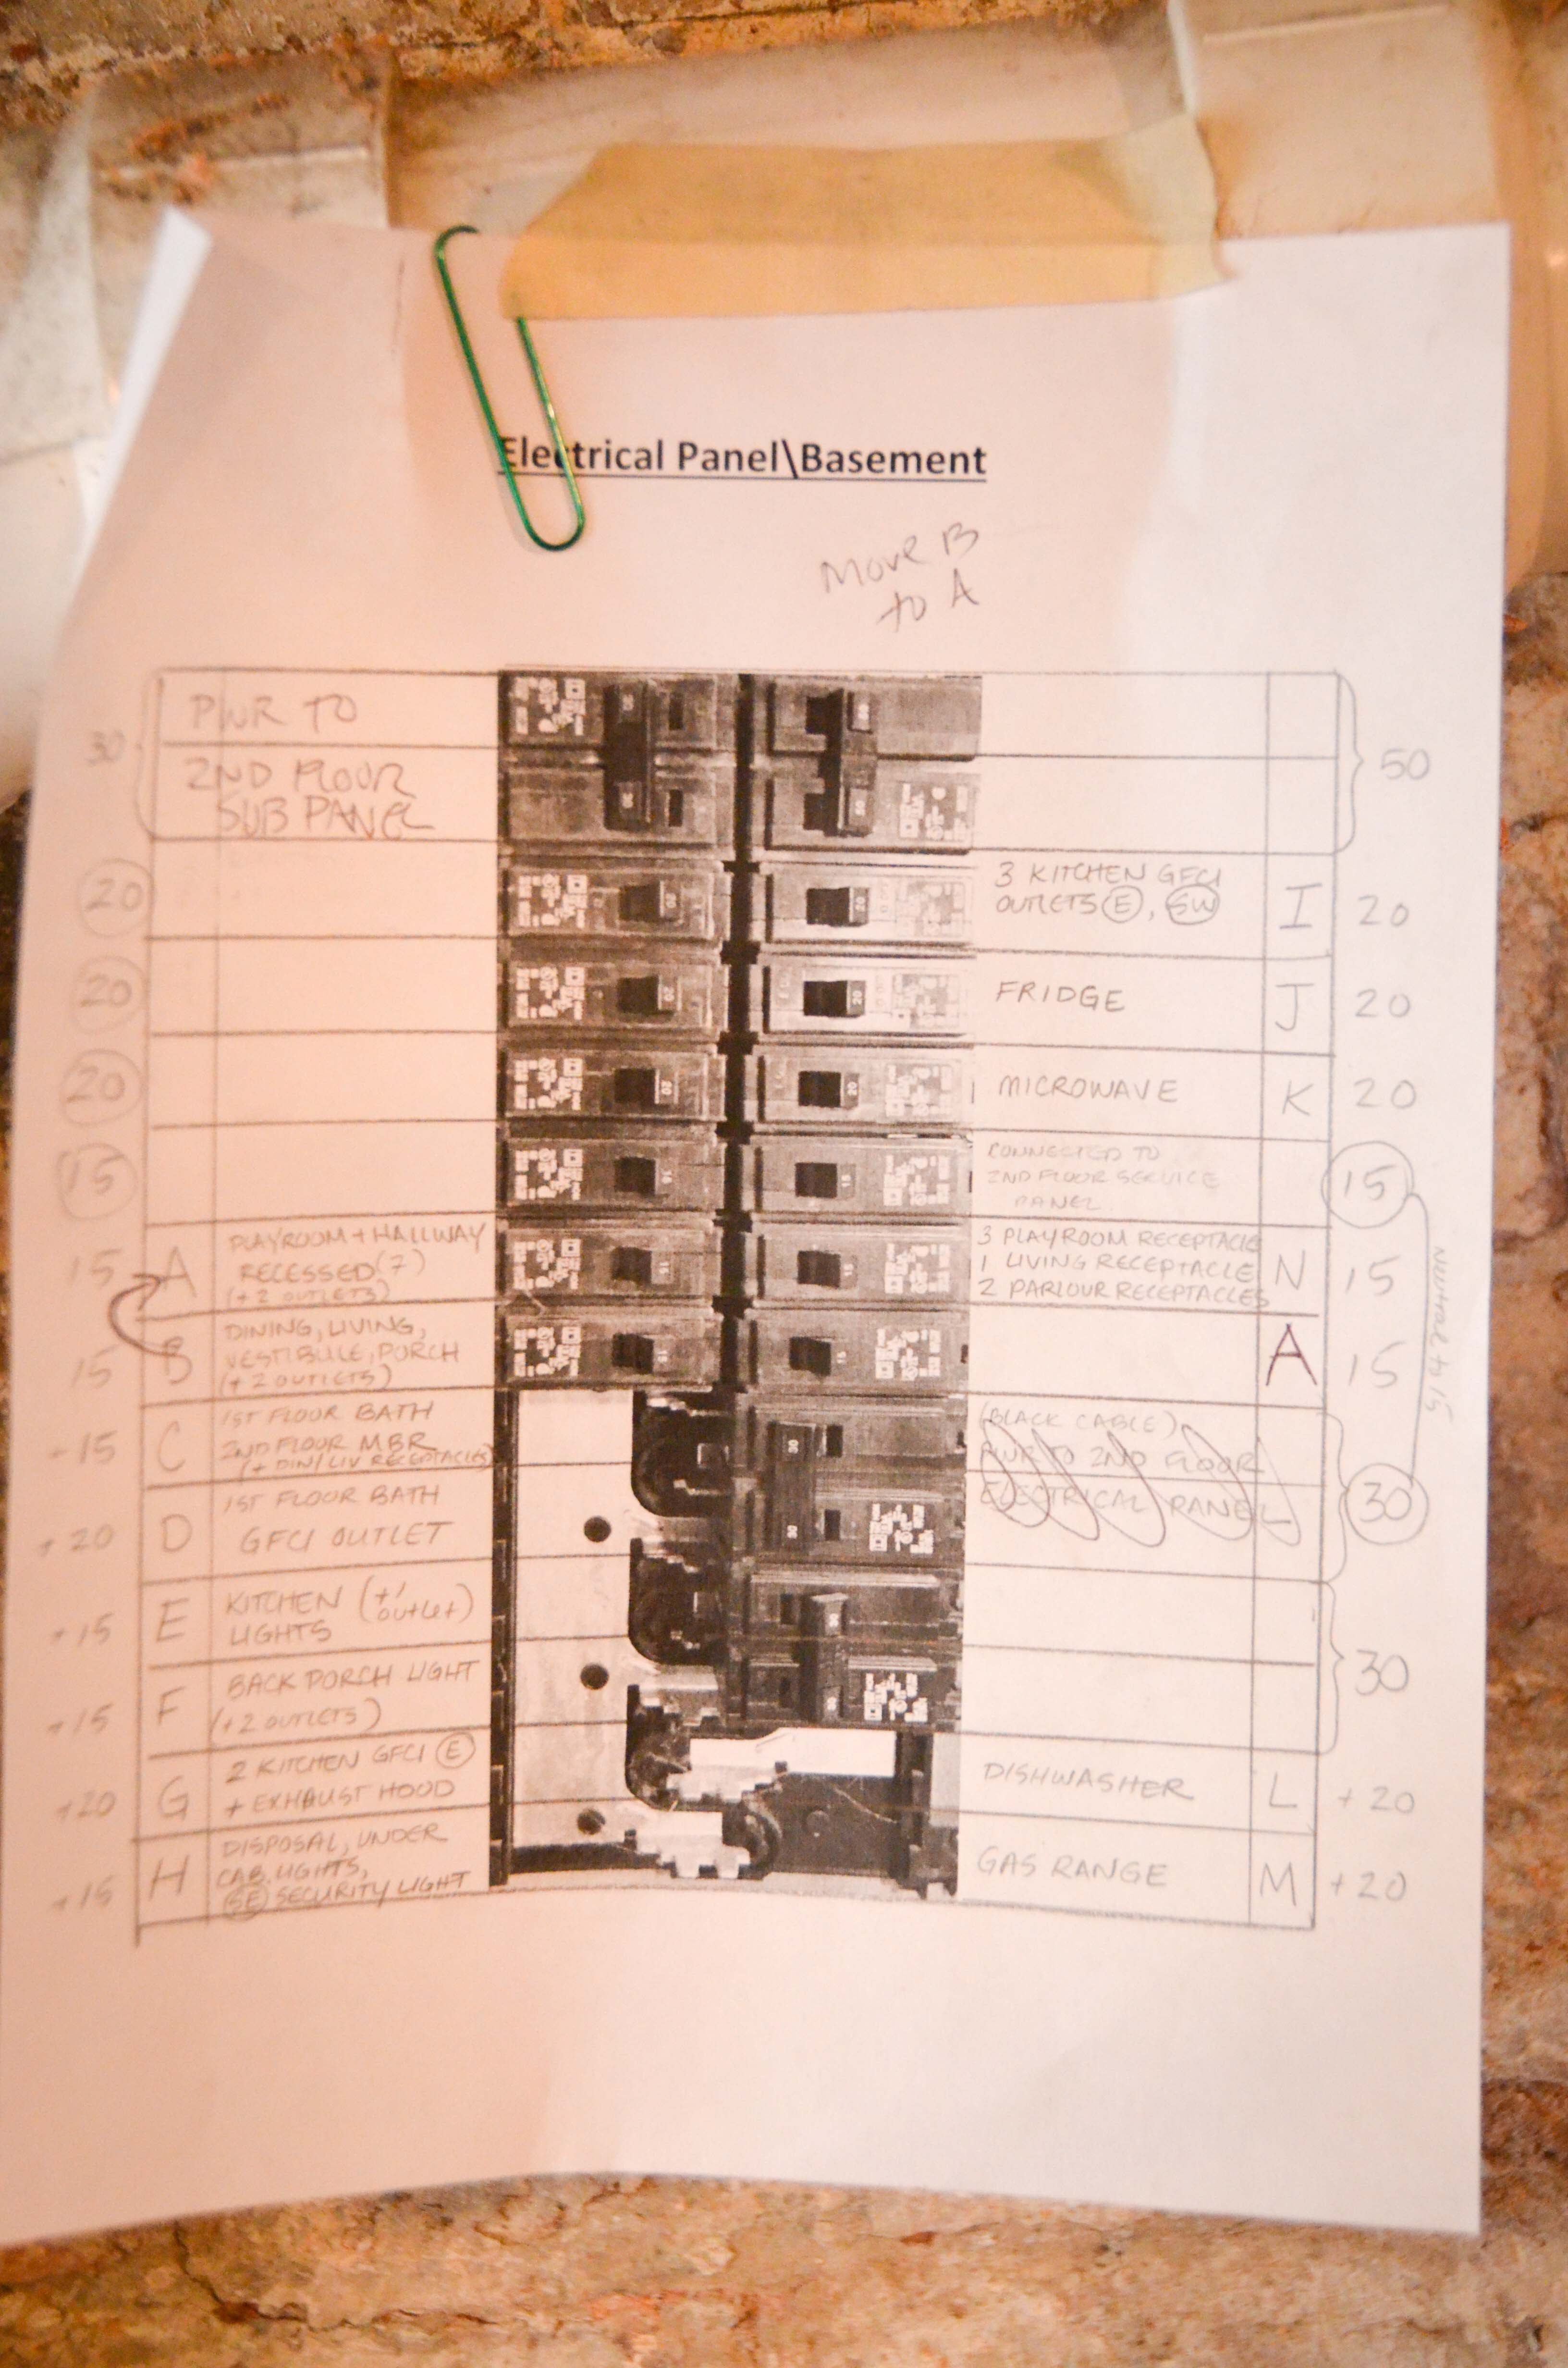 Electrical Panel\Basement
Move B
to A
30
PWR TO
2ND FLOOR
SUB PANEL
50
20
3 KITCHEN GFCI
OUTLETS E, SW
I
20
20
FRIDGE
J
20
20
MICROWAVE
K
20
15
CONNECTED TO
2ND FLOOR SERVICE
PANEL
15
15
A
PLAYROOM + HALLWAY
RECESSED (7)
(+ 2 OUTLETS)
3 PLAYROOM RECEPTACLE
1 LIVING RECEPTACLE
2 PARLOUR RECEPTACLES
N
15
neutral to 15
15
B
DINING, LIVING,
VESTIBULE, PORCH
(+ 2 OUTLETS)
A
15
+15
C
1ST FLOOR BATH
2ND FLOOR MBR
(+ DIN/LIV RECEPTACLES)
(BLACK CABLE)
PWR TO 2ND FLOOR
ELECTRICAL PANEL
30
+20
D
1ST FLOOR BATH
GFCI OUTLET
+15
E
KITCHEN (+1
LIGHTS outlet)
30
+15
F
BACK PORCH LIGHT
(+2 OUTLETS)
+20
G
2 KITCHEN GFCI E
+ EXHAUST HOOD
DISHWASHER
L
+20
+15
H
DISPOSAL, UNDER
CAB. LIGHTS,
SE SECURITY LIGHT
GAS RANGE
M
+20